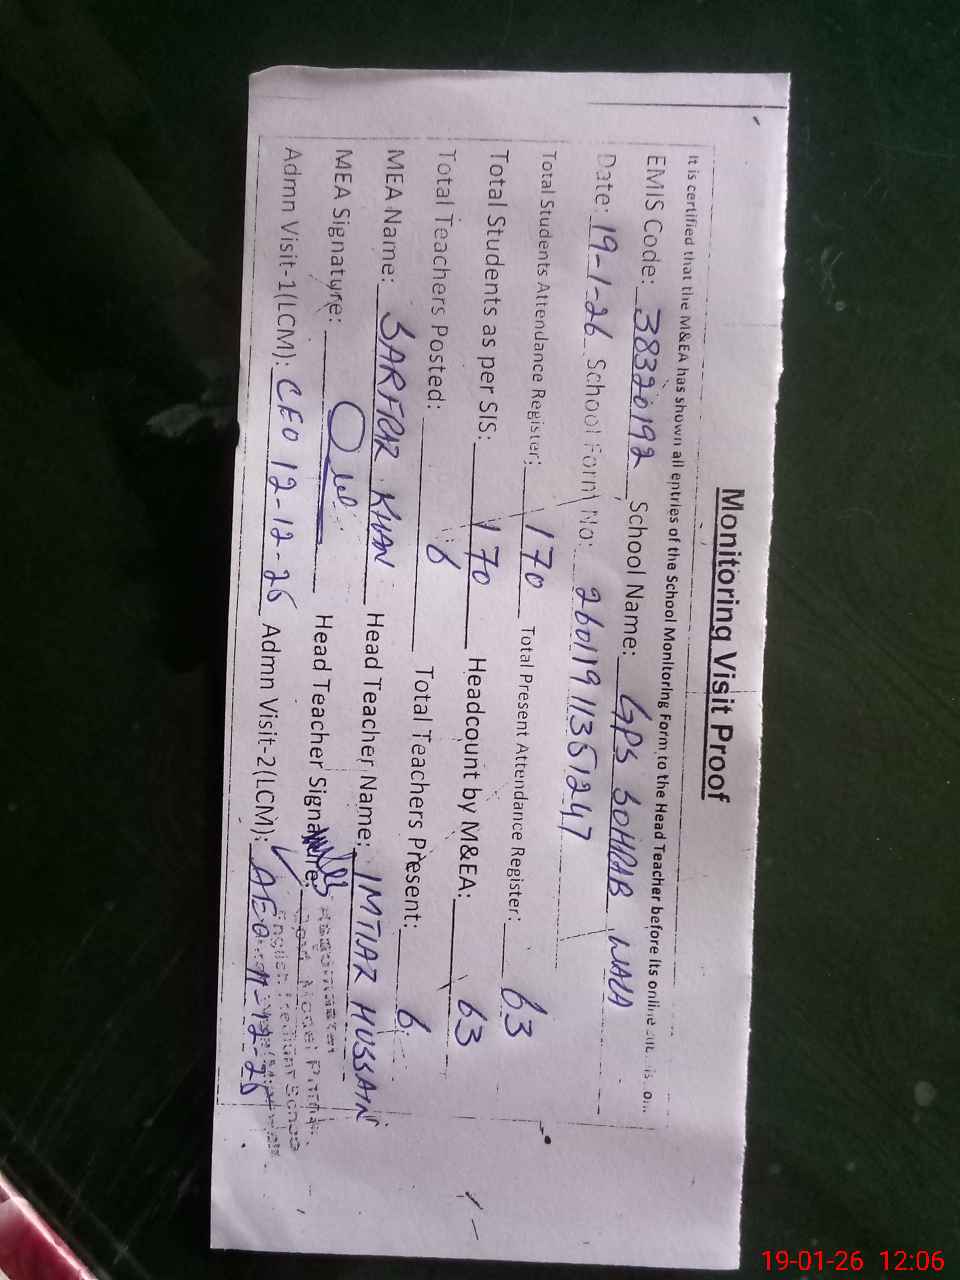 Monitoring Visit Proof
It is certified that the M&EA has shown all entries of the School Monitoring Form to the Head Teacher before its online
EMIS Code: 38320192 School Name: GPS SOHRAB WALA
Date: 19-1-26 School Form No: 26011911351247
Total Students Attendance Register: 170 Total Present Attendance Register: 63
Total Students as per SIS: 170 Headcount by M&EA: 63
Total Teachers Posted: 6 Total Teachers Present: 6
MEA Name: SARFRAZ KHAN Head Teacher Name: IMTIAZ HUSSAIN
MEA Signature: Head Teacher Signature:
Admn Visit-1(LCM): CEO 12-12-25 Admn Visit-2(LCM): AEO 11-12-25
Headmaster
Govt. Model Primary
English Medium School
19-01-26 12:06